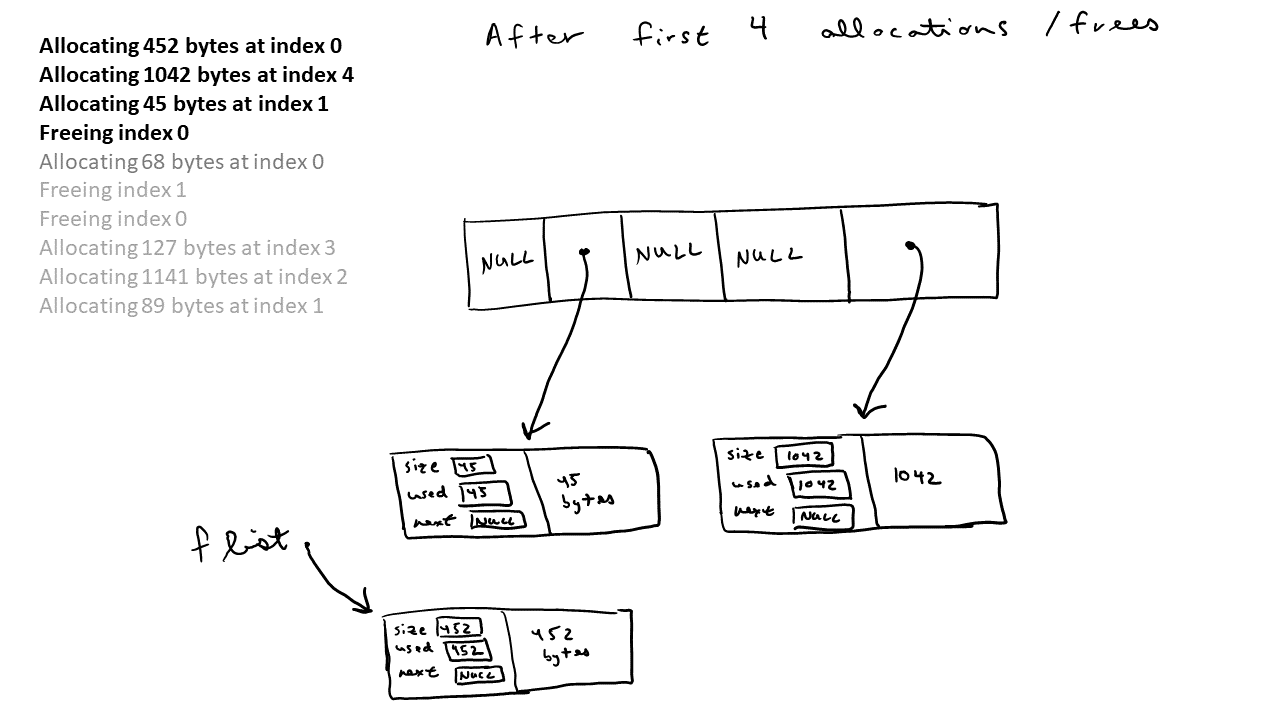 After first 4 allocations / frees
Allocating 452 bytes at index 0
Allocating 1042 bytes at index 4
Allocating 45 bytes at index 1
Freeing index 0
Allocating 68 bytes at index 0
Freeing index 1
Freeing index 0
Allocating 127 bytes at index 3
Allocating 1141 bytes at index 2
Allocating 89 bytes at index 1
NULL NULL NULL
size 45
used 45
next NULL
45
bytes
size 1042
used 1042
next NULL
1042
flist
size 452
used 452
next NULL
452
bytes